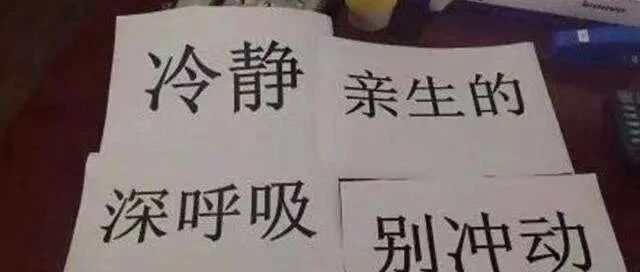 冷静
亲生的
深呼吸
别冲动
lenovo